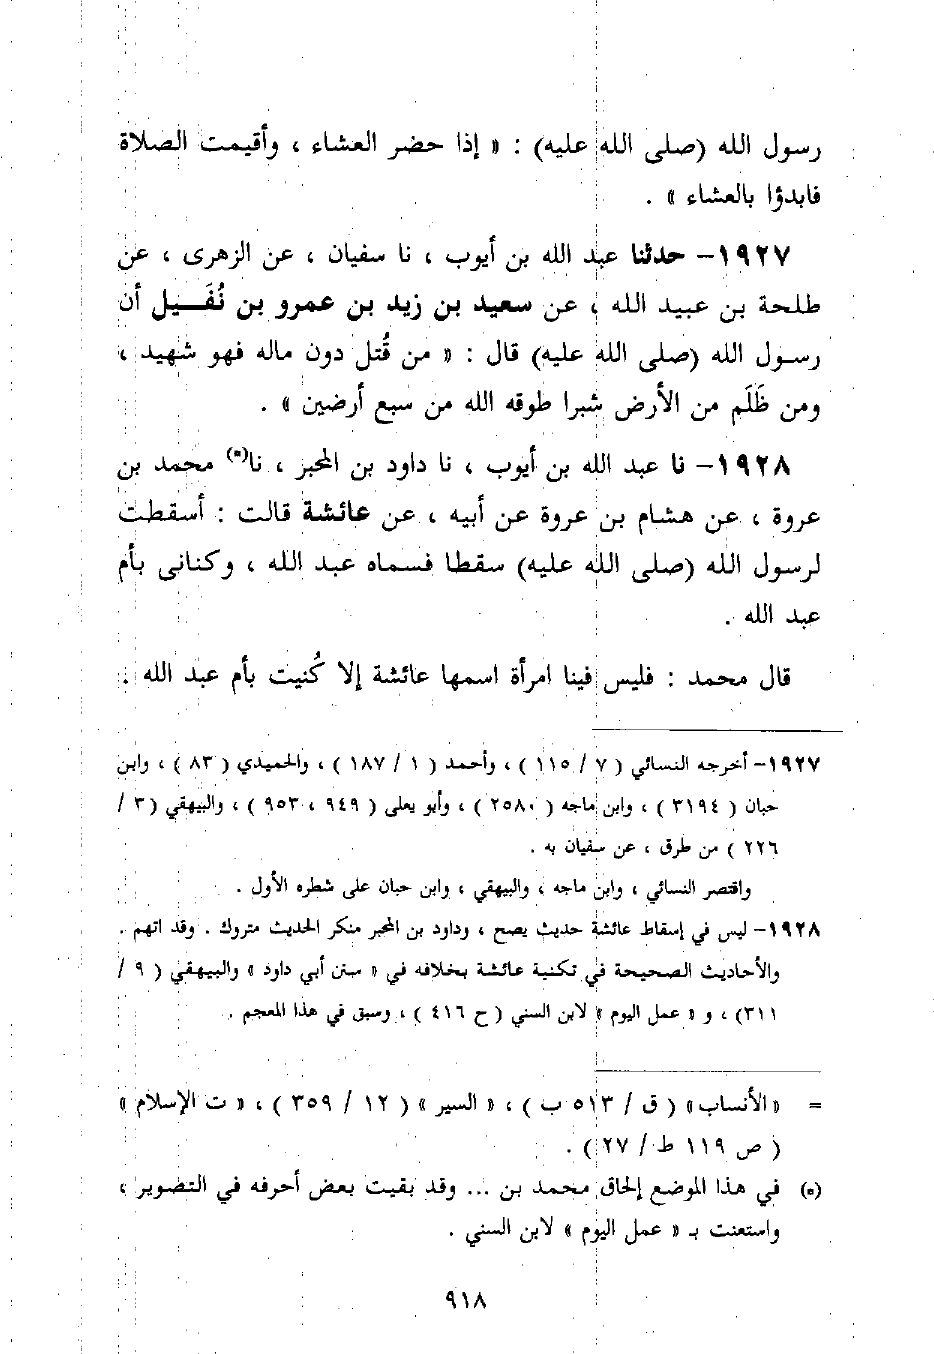 رسول الله (صلى الله عليه) : « إذا حضر العشاء ، وأقيمت الصلاة
فابدؤا بالعشاء » .
١٩٢٧- حدثنا عبد الله بن أيوب ، نا سفيان ، عن الزهرى ، عن
طلحة بن عبيد الله ، عن سعيد بن زيد بن عمرو بن نُفَيـــل أن
رسـول الله (صلى الله عليه) قال : « من قُتل دون ماله فهو شهيد ،
ومن ظَلَم من الأرض شبرا طوقه الله من سبع أرضين » .
١٩٢٨- نا عبد الله بن أيوب ، نا داود بن المحبر ، نا(٥) محمد بن
عروة ، عن هشام بن عروة عن أبيه ، عن عائشة قالت : أسقطت
لرسول الله (صلى الله عليه) سقطا فسماه عبد الله ، وكنانى بأم
عبد الله .
قال محمد : فليس فينا امرأة اسمها عائشة إلا كُنيت بأم عبد الله .
١٩٢٧- أخرجه النسائي ( ٧ / ١١٥ ) ، وأحمد ( ١ / ١٨٧ ) ، والحميدي ( ٨٣ ) ، وابن
حبان ( ٣١٩٤ ) ، وابن ماجه ( ٢٥٨٠ ) ، وأبو يعلى ( ٩٤٩ ، ٩٥٣ ) ، والبيهقي ( ٣ /
٢٢٦ ) من طرق ، عن سفيان به .
واقتصر النسائي ، وابن ماجه ، والبيهقي ، وابن حبان على شطره الأول .
١٩٢٨- ليس في إسقاط عائشة حديث يصح ، وداود بن المحبر منكر الحديث متروك . وقد اتهم .
والأحاديث الصحيحة في تكنية عائشة بخلافه في « سنن أبي داود » والبيهقي ( ٩ /
٣١١) ، و « عمل اليوم » لابن السني ( ح ٤١٦ ) ، وسبق في هذا المعجم .
= « الأنساب» ( ق / ٥١٣ ب ) ، « السير » ( ١٢ / ٣٥٩ ) ، « ت الإسلام »
( ص ١١٩ ط / ٢٧ ) .
(٥) في هذا الموضع إلحاق محمد بن ... وقد بقيت بعض أحرفه في التصوير ،
واستعنت بـ « عمل اليوم » لابن السني .
٩١٨